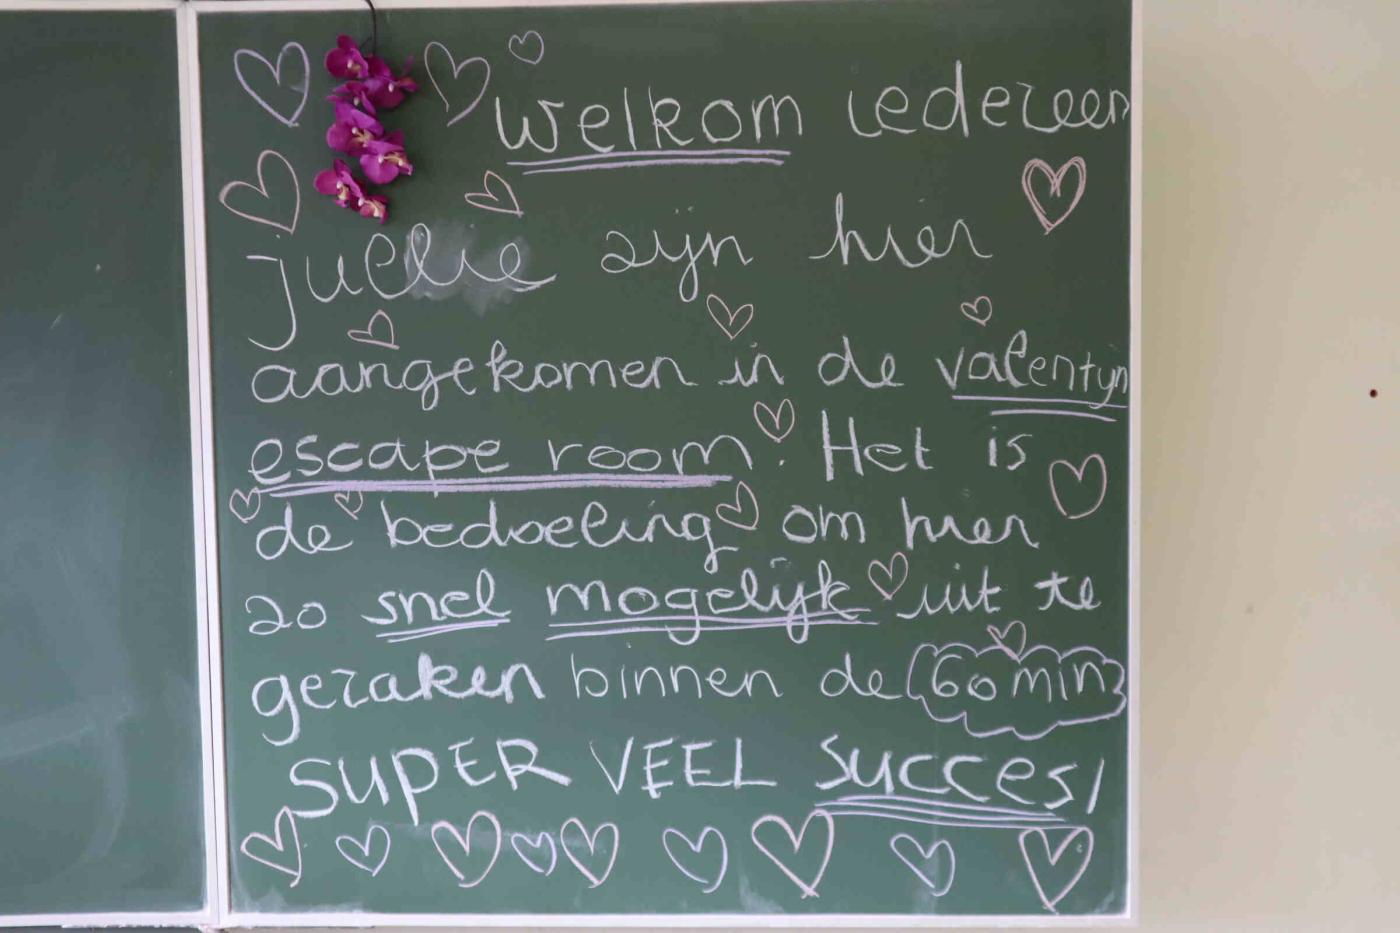 welkom iedereen
jullie zijn hier
aangekomen in de valentijn
escape room. Het is
de bedoeling om hier
zo snel mogelijk uit te
geraken binnen de 60 min
SUPER VEEL Succes!